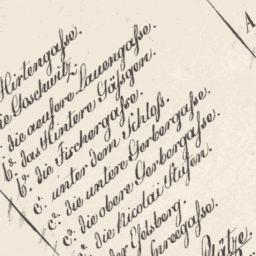 Hirtengaſse.
die Goschwitz.
die aeuſere Lauengaſse.
b. das Hintere Gäſsgen.
b. die Fischergaſse.
c. unter dem Schloſs.
c. die untere Gerbergaſse.
c. die obere Gerbergaſse.
die Nicolai Stufen.
der
Plätze.
A